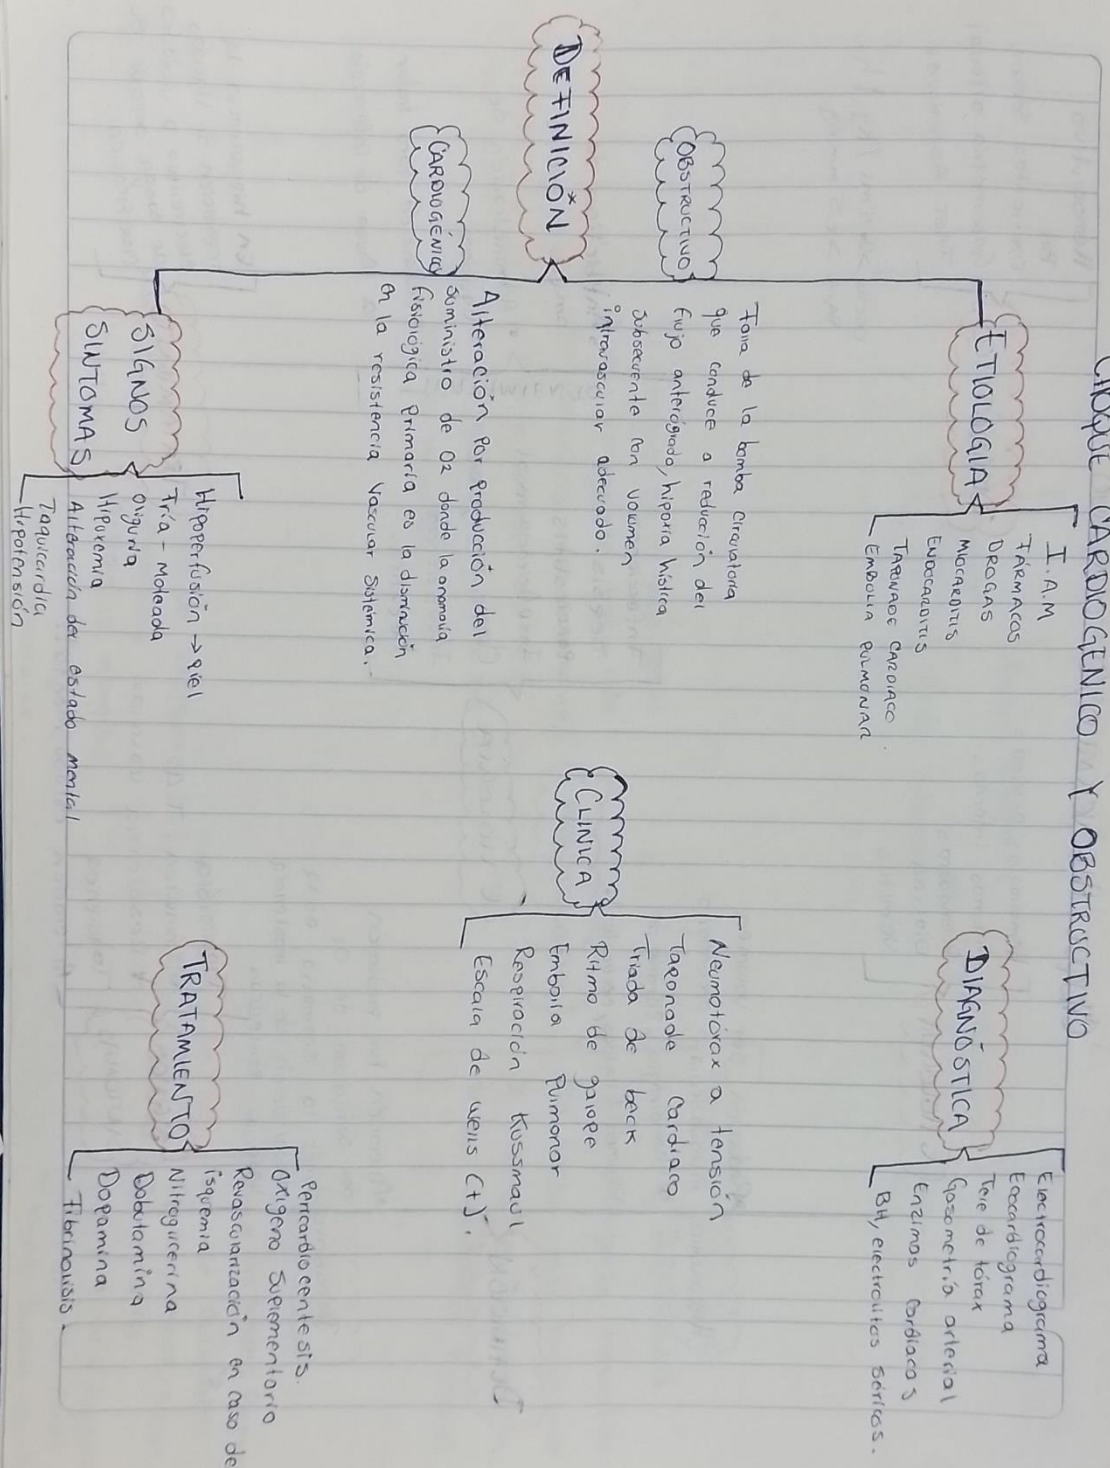 CHOQUE CARDIOGENICO Y OBSTRUCTIVO
ETIOLOGIA
I.A.M
FÁRMACOS
DROGAS
MIOCARDITIS
ENDOCARDITIS
TAPONADE CARDIACO
EMBOLIA PULMONAR
DIAGNÓSTICA
Electrocardiograma
Ecocardiograma
Tele de tórax
Gasometría arterial
Enzimas cardiacas
BH, electrolitos séricos.
DEFINICIÓN
OBSTRUCTIVO
Falla de la bomba circulatoria
que conduce a reducción del
flujo anterógrado, hipoxia hística
subsecuente con volumen
intravascular adecuado.
CARDIOGÉNICO
Alteración por producción del
suministro de O2 donde la anomalía
fisiológica primaria es la disminución
en la resistencia vascular sistémica.
CLINICA
Neumotórax a tensión
Taponade cardiaco
Triada de beck
Ritmo de galope
Embolia Pulmonar
Respiración Kussmaul
Escala de wells (+).
SIGNOS
SINTOMAS
Hipoperfusión → piel
Fría - Moteada
Oliguria
Alteración del estado mental
Taquicardia
Hipotensión
TRATAMIENTO
Pericardiocentesis.
Oxigeno suplementario
Revascularización en caso de
isquemia
Nitroglicerina
Dobutamina
Dopamina
Fibrinolisis.